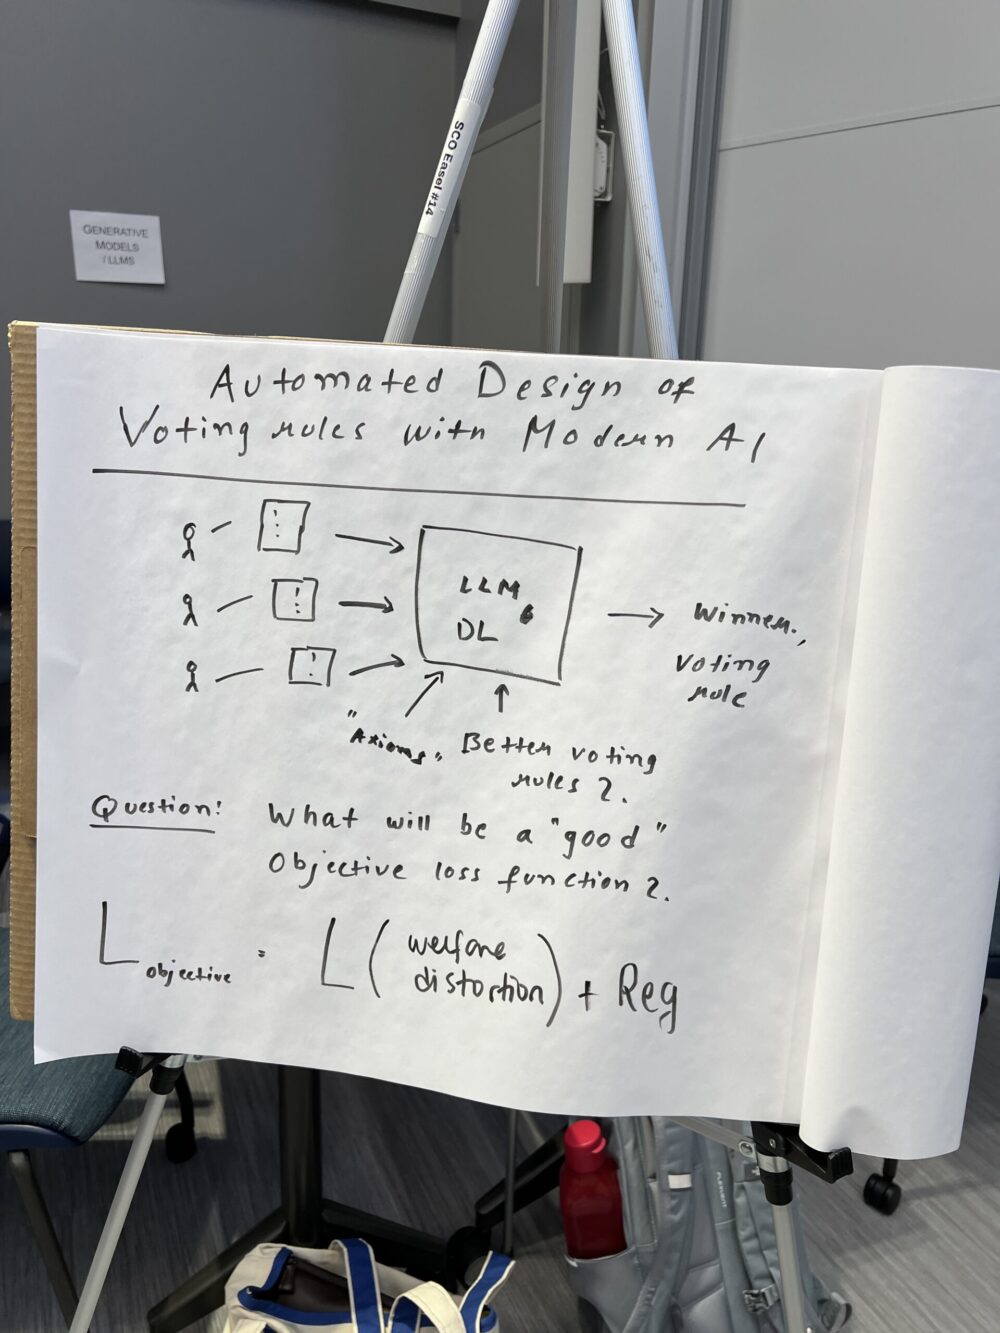 SCO Easel #14
GENERATIVE
MODELS
/ LLMS
Automated Design of
Voting rules with Modern AI
LLM,
DL
Winner,
voting
rule
"Axioms"
Better voting
rules?
Question: What will be a "good"
Objective loss function?
L objective = L ( welfare
distortion ) + Reg